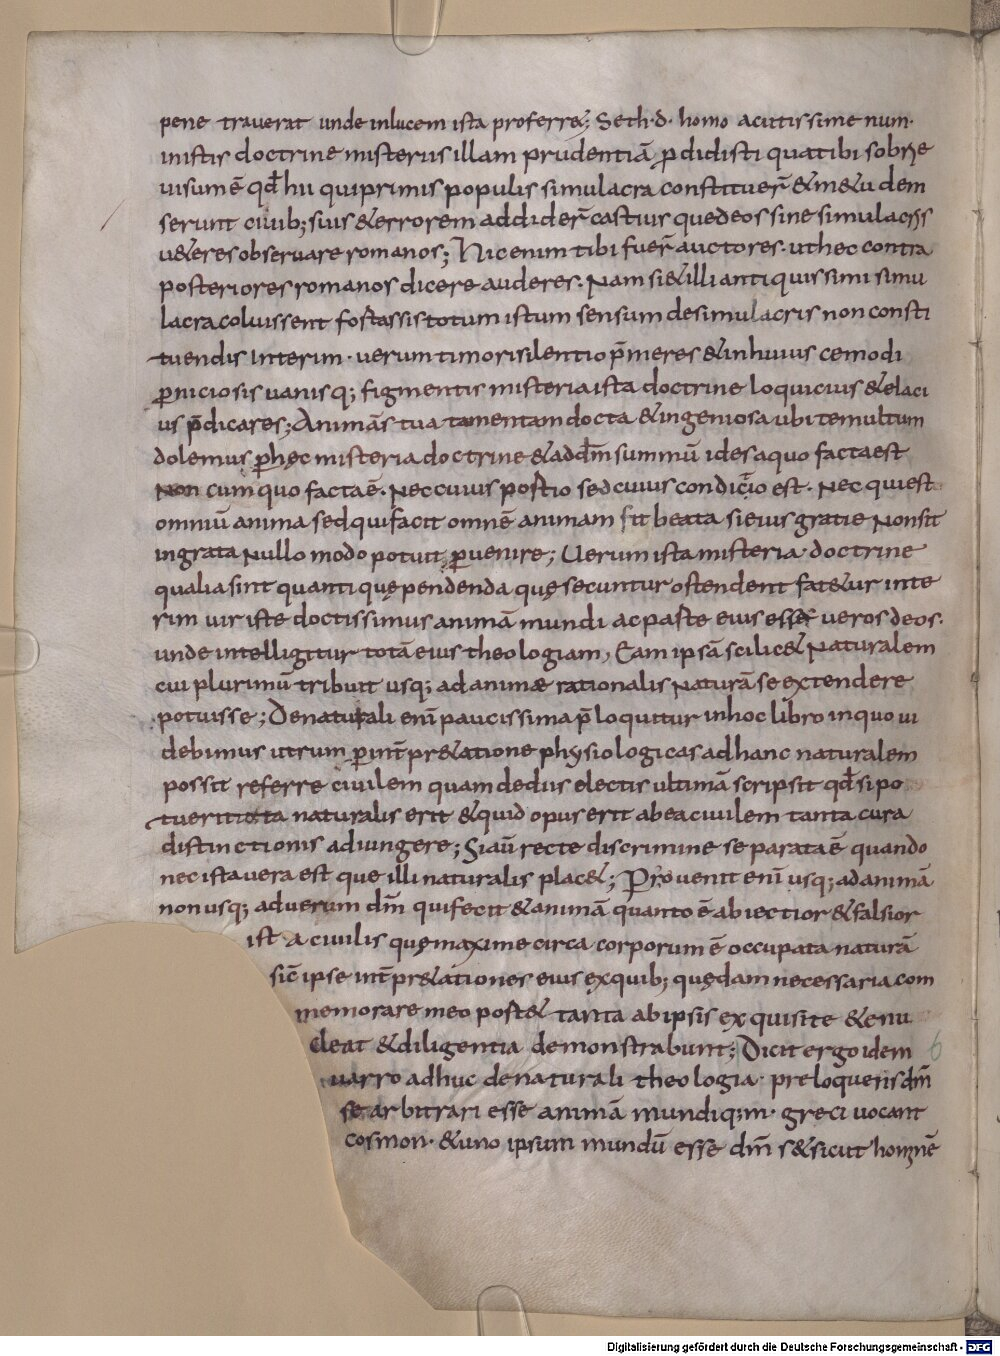 pene traverat unde inlucem ista proferret; Seth·d· homo acutissime num·
inistis doctrine misteriis illam prudentiā p̱didisti qua tibi sobrie
uisum ē qđ hii qui primis populis simulacra constituer̄ & m&u dem
serunt ciuib; suis & errorem addider̄ castius que deos sine simulacris
u&eres obseruare romanos; Hic enim tibi fuer̄ auctores· ut hec contra
posteriores romanos dicere auderes. Nam si & illi antiquissimi simu
lacra coluissent fostassis totum istum sensum de simulacris non consti
tuendis interim· uerum timoris silentio p̄meres & in huius cemodi
p̱niciosis uanisq; figmentis misteria ista doctrine loquicius & elaci
us p̄dicares; Animā s tua tamen tam docta & ingeniosa ubi te multum
dolemus p̱ hęc misteria doctrine & ad dm̄ summū id es a quo facta est
non cum quo facta ē. Nec cuius postio sed cuius condicio est. Nec qui est
omniū anima sed qui facit omnē animam sit beata si eius gratie non sit
ingrata nullo modo potuit p̱uenire; Uerum ista misteria· doctrine
qualia sint quanti quę pendenda quę secuntur ostendent fat&ur inte
rim uir iste doctissimus animā mundi ac paste eius esse ueros deos·
unde intelligitur totā eius theologiam, Eam ipsā scilic& naturalem
cui plurimū tribuit usq; ad animæ rationalis naturā se extendere
potuisse; De naturali enī paucissima p̄loquitur in hoc libro in quo ui
debimus utrum p̱ int̄pr&atione physiologicas ad hanc naturalem
possit referre ciuilem quam de diis electis ultimā scripsit qđ si po
tuerit ista naturalis erit & quid opus erit ab ea ciuilem tanta cura
distinctionis adiungere; Si aū recte discrimine separata ē quando
nec ista uera est que illi naturalis plac&; Peruenit enī usq; ad animā
non usq; ad uerum dm̄ qui fecit & animā quanto ē abiectior & falsior
ist a ciuilis quę maxime circa corporum ē occupata naturā
sic̄ ipse int̄pr&ationes eius ex quib; quędam necessaria com
memorare me o post& tanta ab ipsis exquisite & enu
cleat & diligentia demonstrabunt; Dicit ergo idem
uarro adhuc de naturali theologia· preloquens dm̄
se arbitrari esse animā mundi q;m· greci uocant
cosmon· & uno ipsum mundū esse dm̄ s& sicut hominē
Digitalisierung gefördert durch die Deutsche Forschungsgemeinschaft - DFG